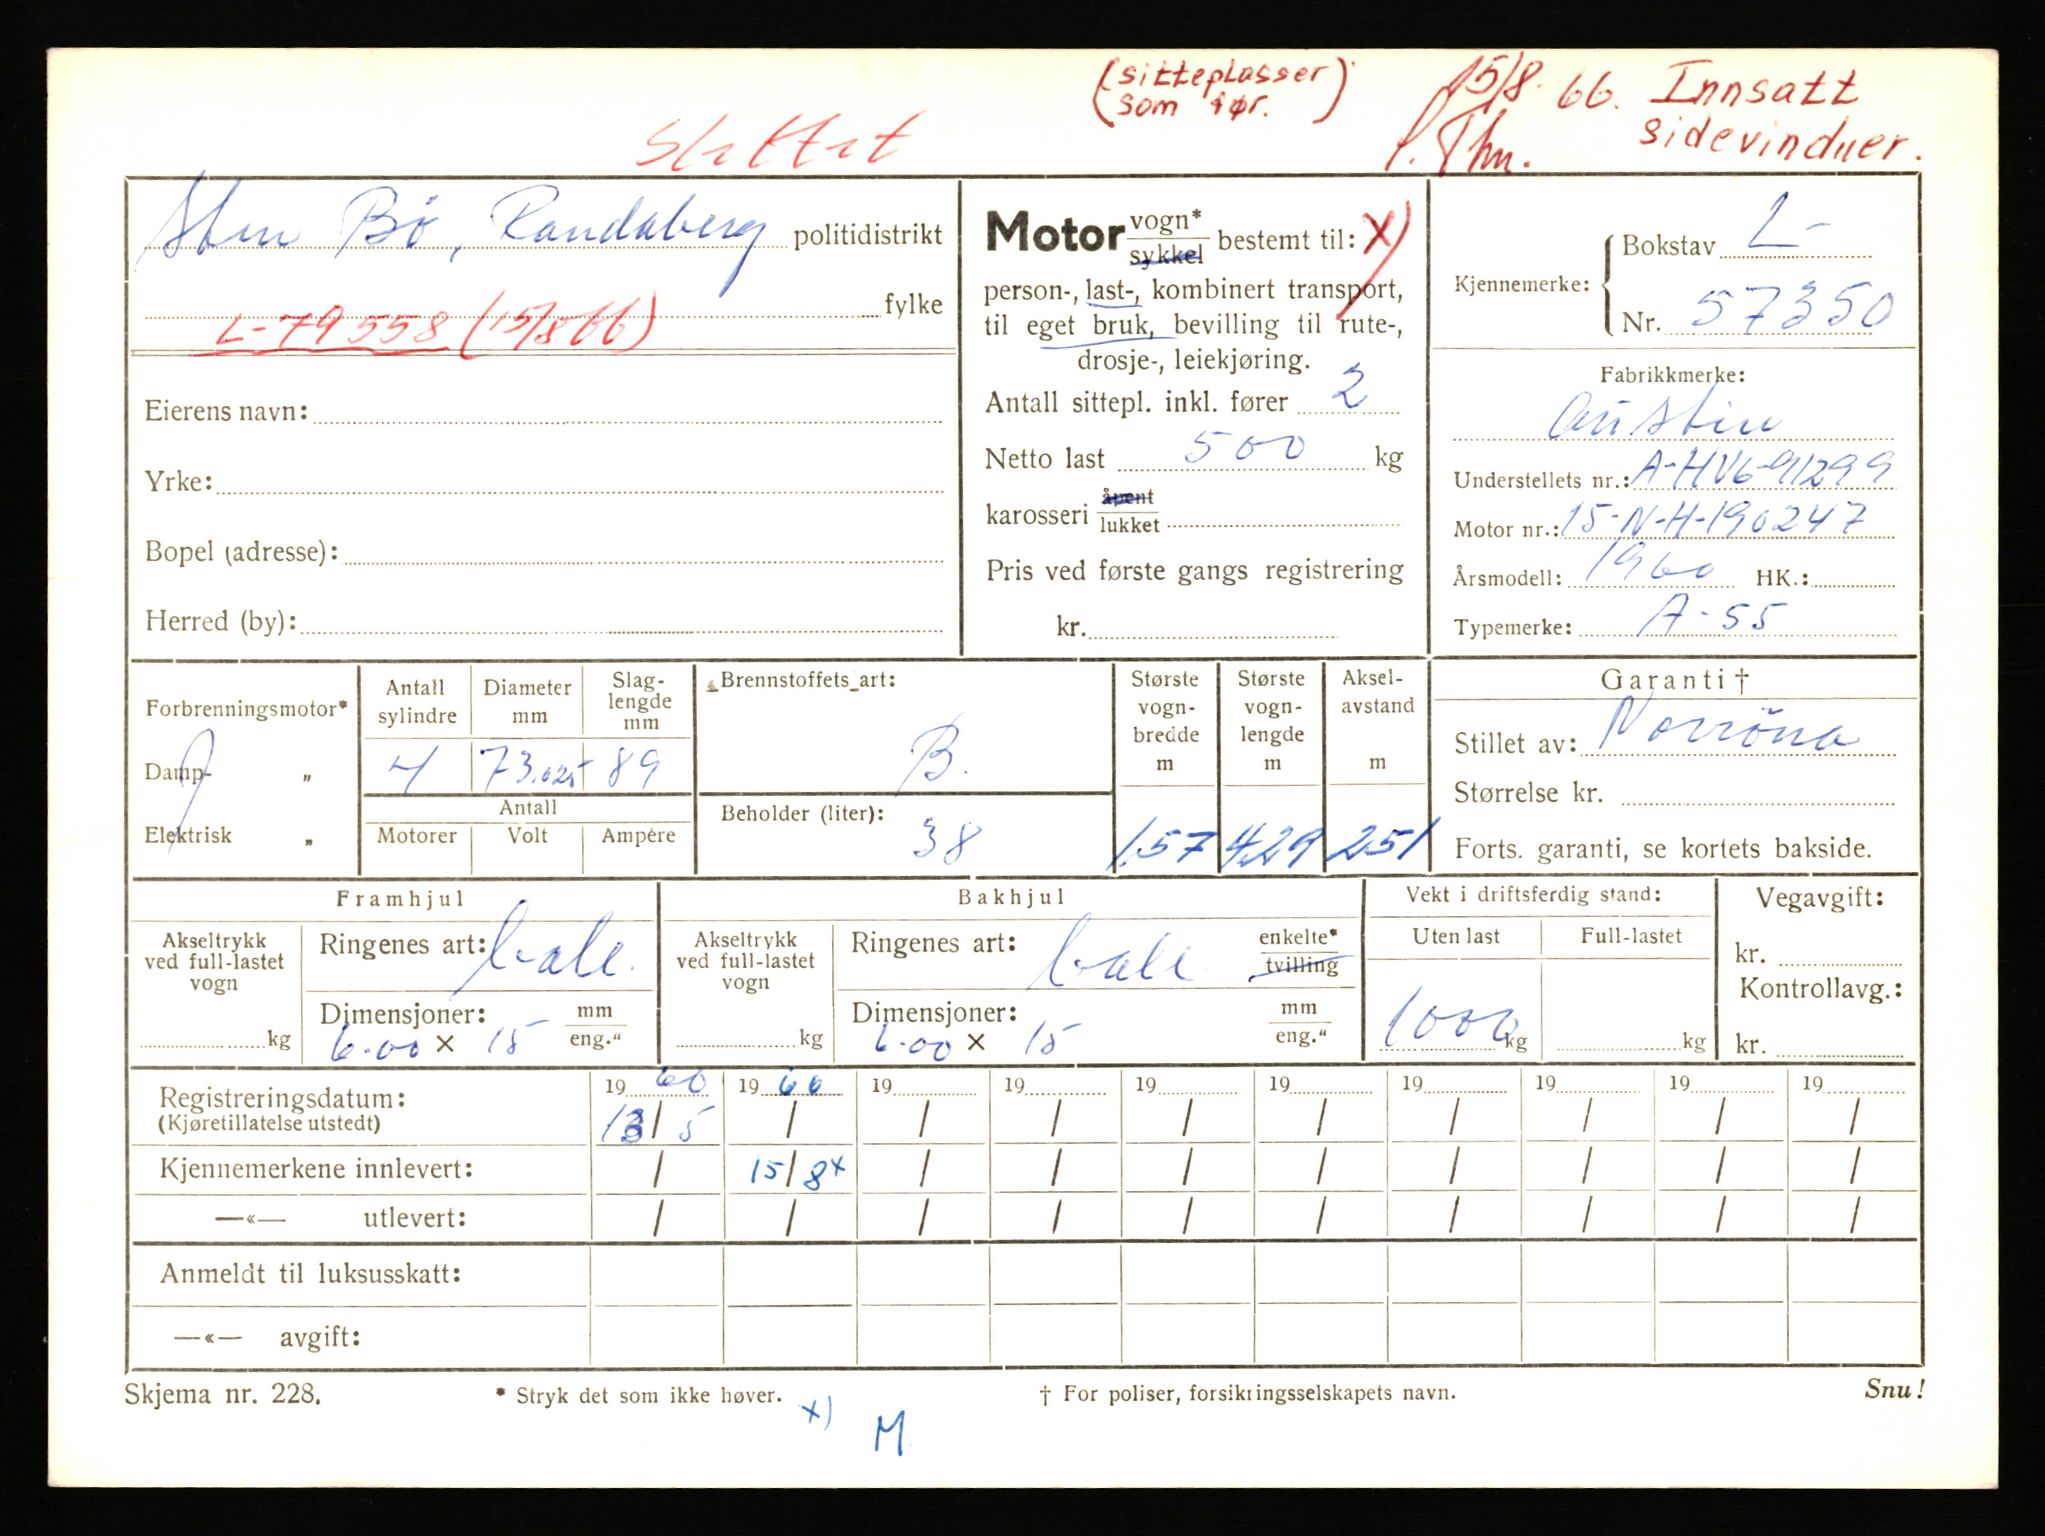 (sitteplasser
som før.)
15/8. 66. Innsatt
sidevinduer.
Slettet
P. Thu.
Sten Bø, Randaberg politidistrikt
L-79558 (15/8 66) fylke
Eierens navn:
Yrke:
Bopel (adresse):
Herred (by):
Motor vogn* / sykkel bestemt til: x)
person-, last-, kombinert transport,
til eget bruk, bevilling til rute-,
drosje-, leiekjøring.
Antall sittepl. inkl. fører 2
Netto last 500 kg
karosseri åpent / lukket
Pris ved første gangs registrering
kr.
Kjennemerke: Bokstav L-
Nr. 57350
Fabrikkmerke:
Austin
Understellets nr.: A-HV6-91299
Motor nr.: 15-N-H-190247
Årsmodell: 1960 HK.:
Typemerke: A-55
Forbrenningsmotor*
Damp- „
Elektrisk „
Antall sylindre 4
Diameter mm 73.025
Slag-lengde mm 89
Antall
Motorer Volt Ampére
Brennstoffets art:
B.
Beholder (liter):
38
Største vogn-bredde m 1.57
Største vogn-lengde m 4.29
Aksel-avstand m 251
Garanti †
Stillet av: Norröna
Størrelse kr.
Forts. garanti, se kortets bakside.
Framhjul
Akseltrykk ved full-lastet vogn
kg
Ringenes art:
Dimensjoner: mm / eng.“
6.00 x 15
Bakhjul
Akseltrykk ved full-lastet vogn
kg
Ringenes art: enkelte* / tvilling
Dimensjoner: mm / eng.“
6.00 x 15
Vekt i driftsferdig stand:
Uten last Full-lastet
1000 kg kg
Vegavgift:
kr.
Kontrollavg.:
kr.
Registreringsdatum: 19 60 19 66 19 19 19 19 19 19 19 19
(Kjøretillatelse utstedt) 13/5 / / / / / / / / /
Kjennemerkene innlevert: / 15/8x / / / / / / / /
—«— utlevert: / / / / / / / / / /
Anmeldt til luksusskatt:
—«— avgift:
Skjema nr. 228. * Stryk det som ikke høver. † For poliser, forsikringsselskapets navn. Snu!
x) M